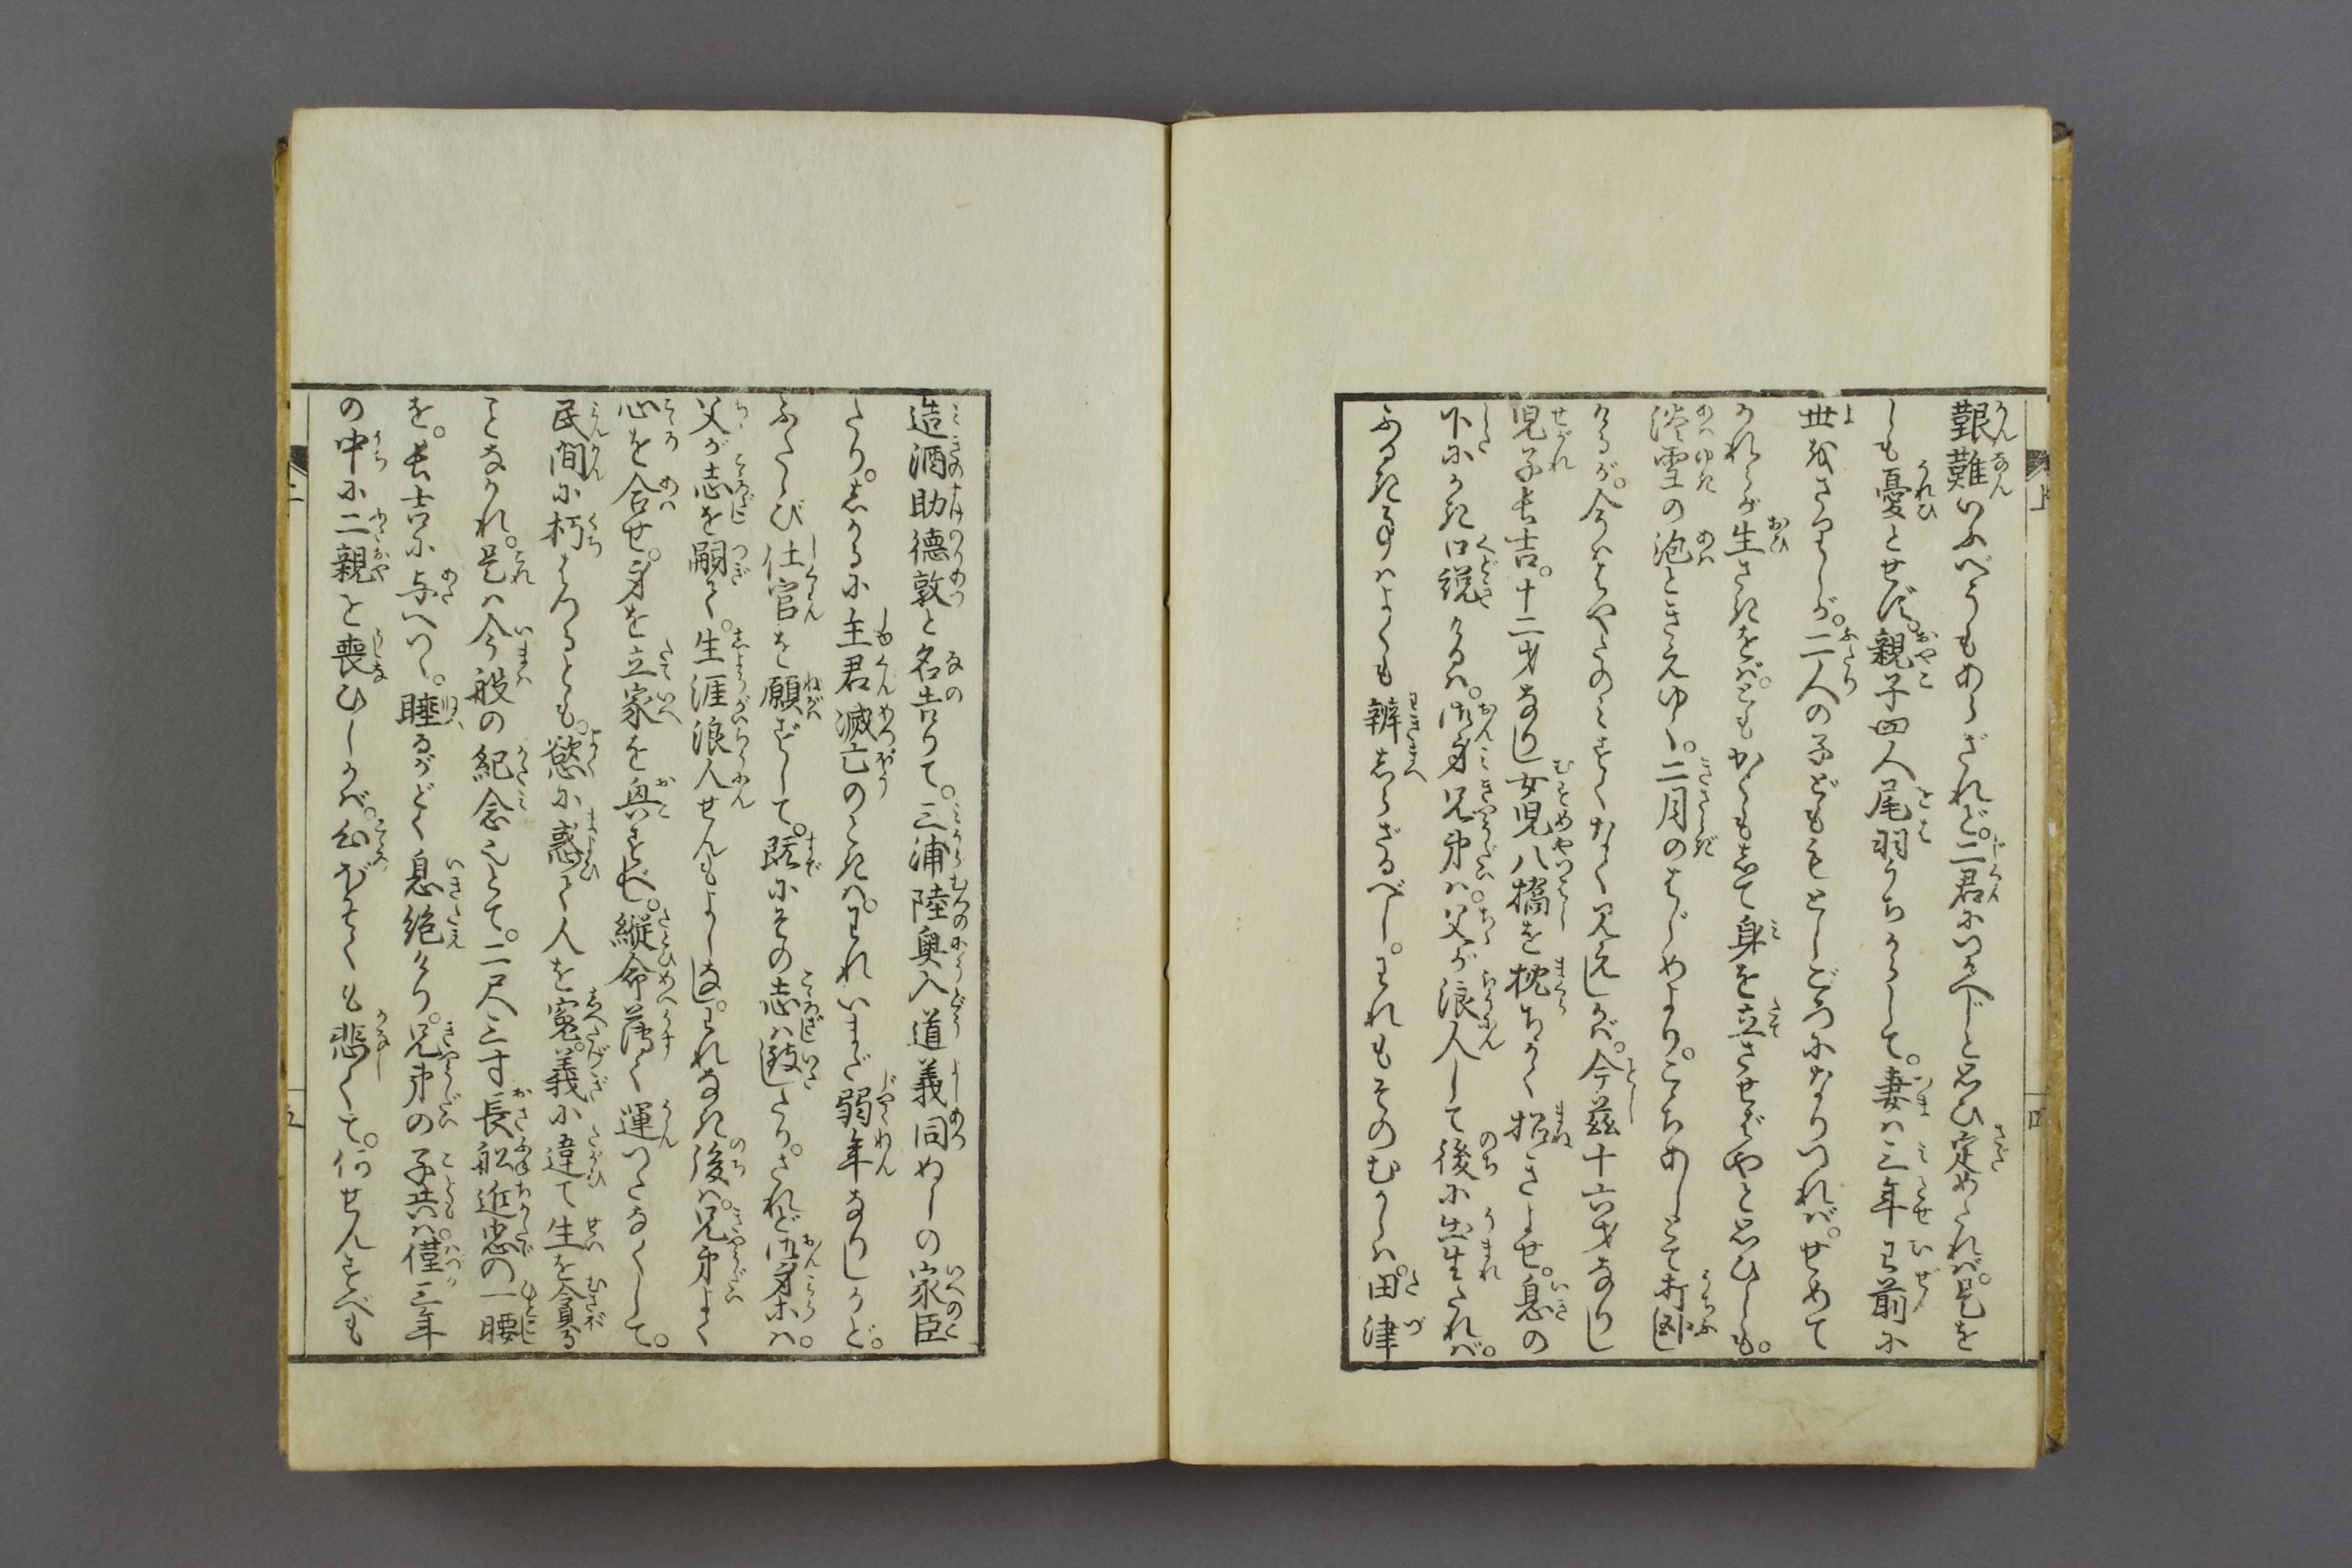 艱難いふべうもあらざれど。二君につかへじと思ひ定めたれば。是を
しも憂とせず。親子四人尾羽うちからして。妻は三年以前に
世をさりしが。二人の子どももとしごろになりつれば。せめて
かれらが生さきをば。ともかくも志て身を立させばやと思ひしも。
淡雪の泡ときえゆく。二月のはじめより。こゝちあしとて打臥し
けるが。今ははやたのみすくなく見えしかば。今茲十六才なりし
児子長吉。十二才なりし女児八橋を枕ちかく招きよせ。息の
下にかき口説けるは。御身兄弟は。父が浪人して後に出生たれば。
ふるき事はよくも辨志らざるべし。われもそのむかしは。田津
造酒助徳敦と名告りて。三浦陸奥入道義同ぬしの家臣
たり。志かるに主君滅亡のときは。われいまだ弱年なりしかど。
ふたゝび仕官を願ずして。既にその志は致したり。されど御身ホは。
父が志を嗣て。生涯浪人せんもよしなし。われなき後は。兄弟よく
心を合せ。身を立家を興すべし。縦命薄く運つたなくして。
民間に朽はつるとも。慾に惑て人を冤。義に違て生を貪る
ことなかれ。是は今般の紀念也とて。二尺三寸長舩近忠の一腰
を。長吉に与へつゝ。睡るがごとく息絶けり。兄弟の子共は。僅三年
の中に二親を喪ひしかば。幼ごゝろにも悲しくて。何せんすべも